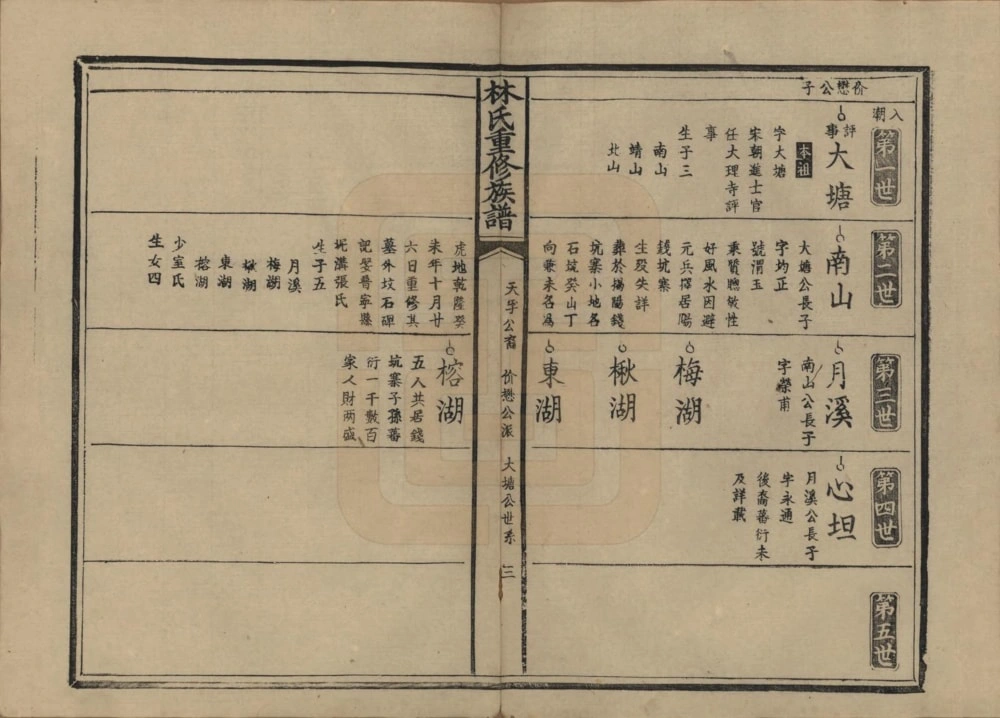 价懋公子
入潮
第一世
評事
大塘
本祖
字大塘
宋朝進士官
任大理寺評
事
生子三
南山
靖山
北山
第二世
南山
大塘公長子
字均正
號渭玉
秉質聰敏性
好風水因避
元兵擇居陽
錢坑寨
生歿失詳
葬於揭陽錢
坑寨小地名
石碇癸山丁
向兼未名為
虎地乾隆癸
未年十月廿
六日重修其
墓外坟石碑
記娶晋寧縣
坭溝張氏
生子五
月溪
梅湖
楸湖
東湖
榕湖
少室氏
生女四
第三世
月溪
南山公長子
字榮甫
梅湖
楸湖
東湖
榕湖
五人共居錢
坑寨子孫蕃
衍一千數百
家人財兩盛
第四世
心坦
月溪公長子
字永通
後裔蕃衍未
及詳載
第五世
林氏重修族譜
天孚公裔
价懋公派
大塘公世系
三